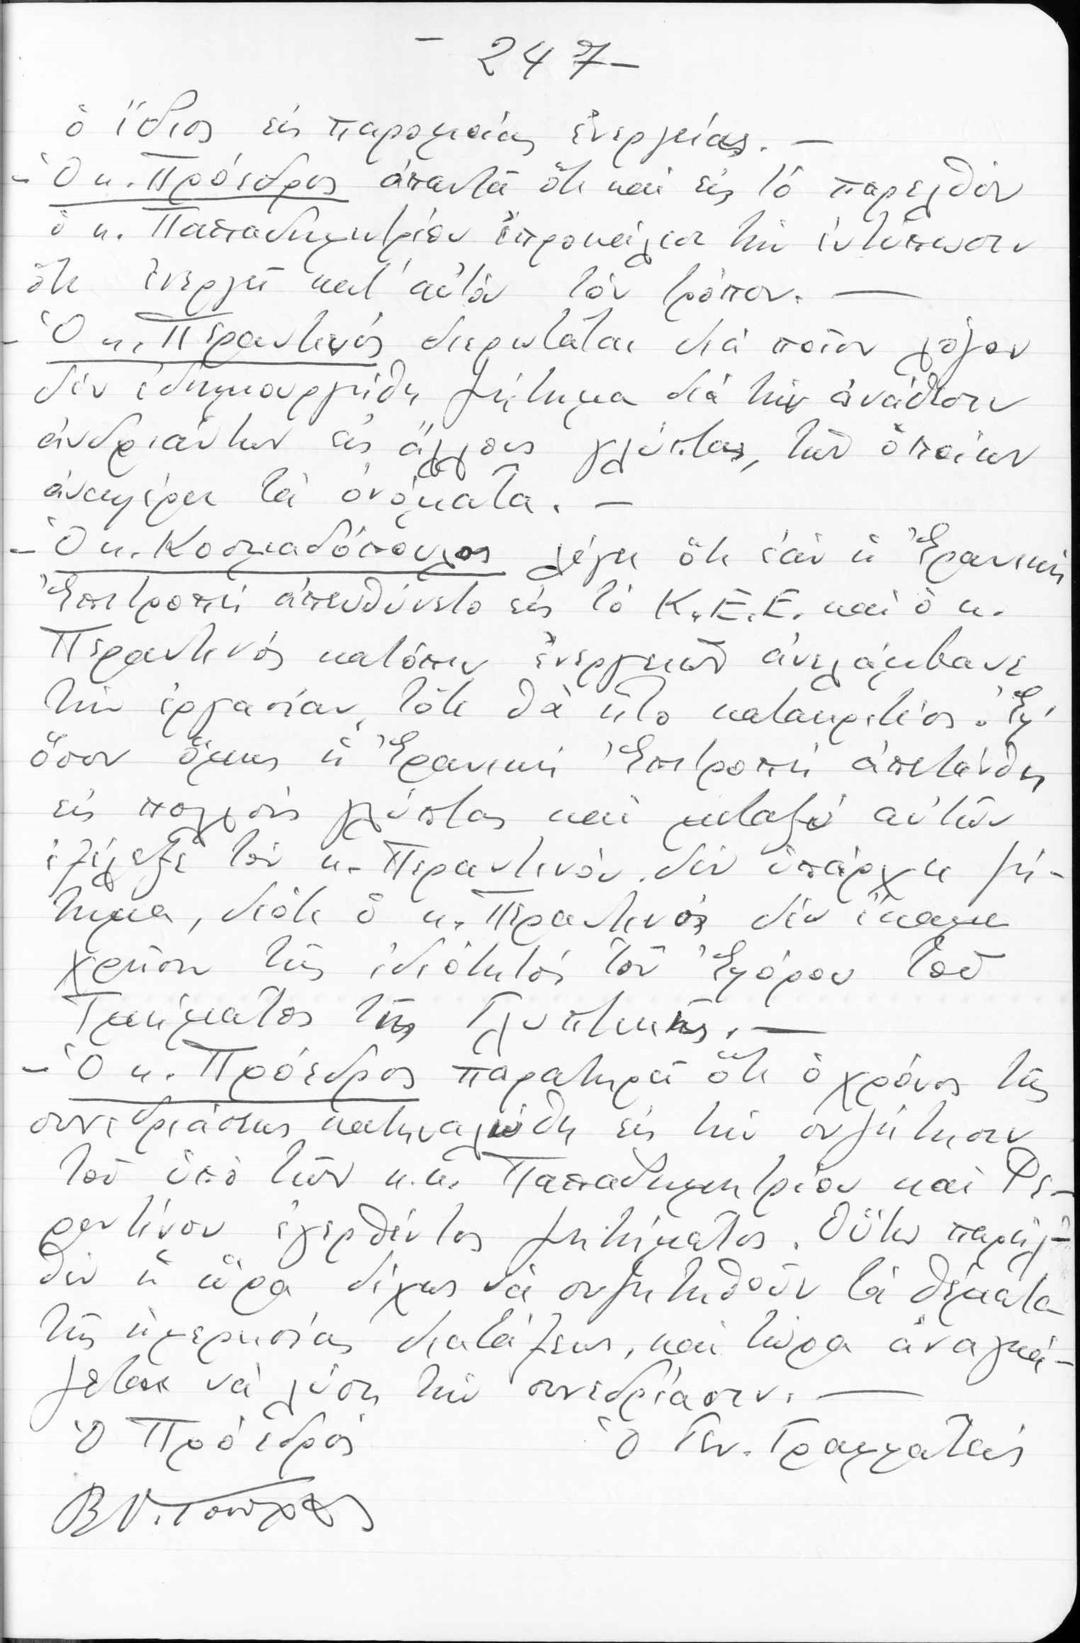 - 247 -
ὁ ἴδιος εἰς παρομοίας ἐνεργείας. —
- Ὁ κ. Πρόεδρος ἀπαντᾶ ὅτι καὶ εἰς τό παρελθόν
ὁ κ. Παπαδημητρίου ἐπροκάλεσε τήν ἐντύπωσιν
ὅτι ἐνεργεῖ κατ' αὐτόν τόν τρόπον. —
- Ὁ κ. Περαντινός διερωτᾶται διά ποῖον λόγον
δέν ἐδημιουργήθη ζήτημα διά τήν ἀνάθεσιν
ἀνδριάντων εἰς ἄλλους γλύπτας, τῶν ὁποίων
ἀναφέρει τά ὀνόματα. —
- Ὁ κ. Κοσμαδόπουλος λέγει ὅτι ἐάν ἡ Ἐρανική
Ἐπιτροπή ἀπευθύνετο εἰς τό Κ.Ε.Ε. καί ὁ κ.
Περαντινός κατόπιν ἐνεργειῶν ἀνελάμβανε
τήν ἐργασίαν, τότε θά ἦτο κατακριτέος. Ἐφ'
ὅσον ὅμως ἡ Ἐρανική Ἐπιτροπή ἀπετάνθη
εἰς πολλούς γλύπτας καί μεταξύ αὐτῶν
ἐπέλεξε τόν κ. Περαντινόν. δέν ὑπάρχει ζή-
τημα, διότι ὁ κ. Περαντινός δέν ἔκαμε
χρῆσιν τῆς ἰδιότητός του Ἐφόρου τοῦ
Τμήματος τῆς Γλυπτικῆς. —
- Ὁ κ. Πρόεδρος παρατηρεῖ ὅτι ὁ χρόνος τῆς
συνεδριάσεως κατηναλώθη εἰς τήν συζήτησιν
τοῦ ὑπό τῶν κ.κ. Παπαδημητρίου καί Πε-
ραντίνου ἐγερθέντος ζητήματος. Οὕτω παρῆλ-
θεν ἡ ὥρα δίχως νά συζητηθοῦν τά θέματα
τῆς ἡμερησίας διατάξεως, καί τώρα ἀναγκά-
ζεται νά λύσῃ τήν συνεδρίασιν. —
Ὁ Πρόεδρος Ὁ Γεν. Γραμματεύς